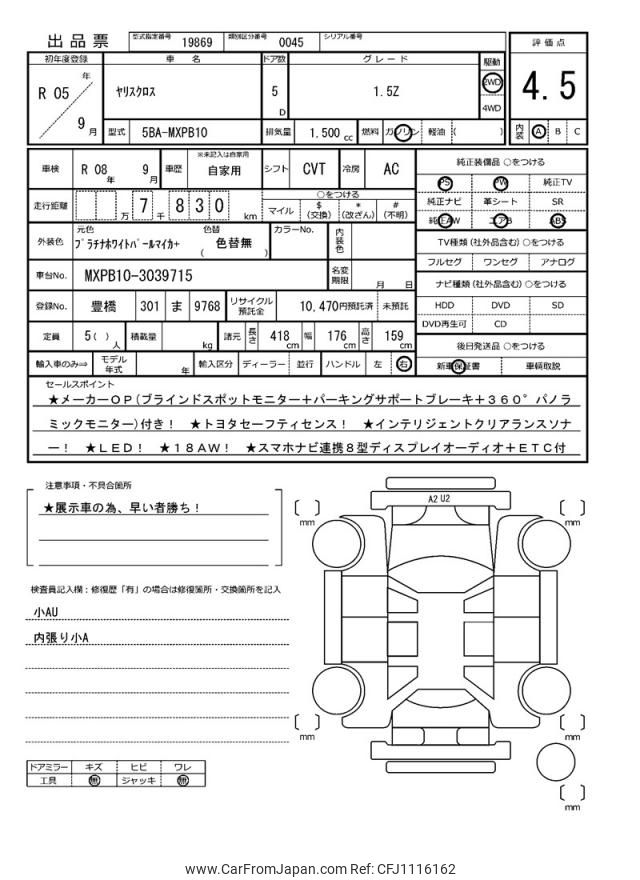 出品票 型式指定番号 19869 類別区分番号 0045 シリアル番号
評価点
初年度登録 車名 ドア数 グレード 駆動
R 05 年 ヤリスクロス 5 D 1.5Z 2WD 4WD
4.5
9 月 型式 5BA-MXPB10 排気量 1.500 cc 燃料 ガソリン 軽油 ( )
内装 A B C
車検 R 08 年 9 月 車歴 ※未記入は自家用 自家用 シフト CVT 冷房 AC
純正装備品 ○をつける
PS PW 純正TV
走行距離 万 7 千 8 3 0 km
○をつける
マイル $(交換) *(改ざん) #(不明)
純正ナビ 革シート SR
純正AW エアB ABS
外装色 元色 プラチナホワイトパールマイカ+ 色替 ( 色替無 ) カラーNo. 内装色
TV種類(社外品含む)○をつける
フルセグ ワンセグ アナログ
車台No. MXPB10-3039715 名変期限 月 日
ナビ種類(社外品含む)○をつける
登録No. 豊橋 301 ま 9768 リサイクル預託金 10.470円預託済 未預託
HDD DVD SD
DVD再生可 CD
定員 5( )人 積載量 kg 諸元 長さ 418 cm 幅 176 cm 高さ 159 cm
後日発送品 ○をつける
輸入車のみ⇒ モデル年式 年 輸入区分 ディーラー 並行 ハンドル 左 右
新車保証書 車輌取説
セールスポイント
★メーカーOP(ブラインドスポットモニター+パーキングサポートブレーキ+360°パノラ
ミックモニター)付き! ★トヨタセーフティセンス! ★インテリジェントクリアランスソナ
ー! ★LED! ★18AW! ★スマホナビ連携8型ディスプレイオーディオ+ETC付
注意事項・不具合箇所
★展示車の為、早い者勝ち!
A2 U2
mm
mm
検査員記入欄:修復歴「有」の場合は修復箇所・交換箇所を記入
小AU
内張り小A
mm
mm
ドアミラー キズ ヒビ ワレ
工具 無 ジャッキ 無
mm
www.CarFromJapan.com Ref: CFJ1116162